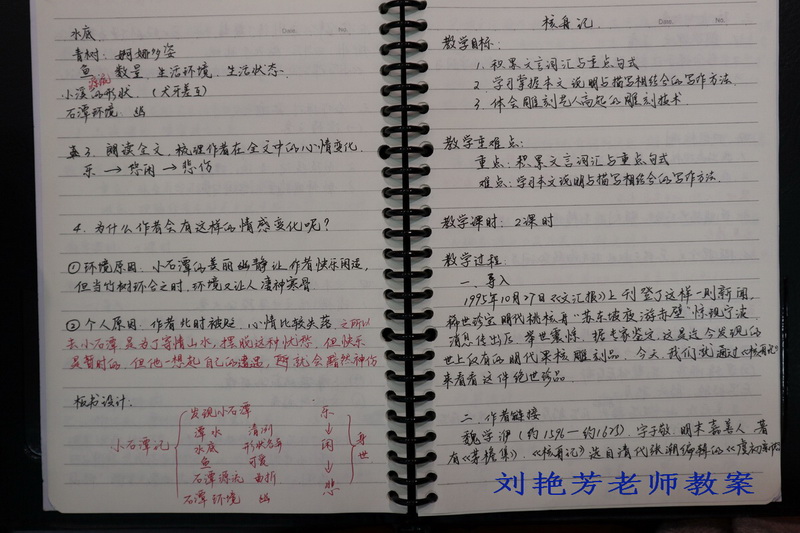 水底
青树：婀娜多姿
鱼 数量、生活环境、生活状态
源流
小溪的形状 （犬牙差互）
石潭环境 幽
3. 阅读全文，梳理作者在全文中的心情变化.
乐 → 悠闲 → 悲伤
4. 为什么作者会有这样的情感变化呢？
①环境原因：小石潭的美丽幽静让作者快乐闲适，
但当竹树环合之时，环境又让人凄神寒骨
②个人原因：作者此时被贬，心情比较失落，之所以
去小石潭是为了寄情山水，摆脱这种忧伤，但快乐
是暂时的，但他一想起自己的遭遇，所就会黯然神伤
板书设计：
小石潭记
发现小石潭 乐
潭水 清冽 ↓
水底 形状各异 闲
鱼 可爱
石潭源流 曲折 ↓
石潭环境 幽 悲
身世
Date. No.
核舟记
教学目标：
1. 积累文言词汇与重点句式
2. 学习掌握本文说明与描写相结合的写作方法.
3. 体会雕刻艺人高超的雕刻技术.
教学重难点：
重点：积累文言词汇与重点句式
难点：学习本文说明与描写相结合的写作方法.
教学课时：2课时
教学过程
一、导入
1995年10月27日《文汇报》上刊登了这样一则新闻，
稀世珍宝明代桃核舟“苏东坡夜游赤壁”惊现宁波
消息传出后，举世震惊，据专家鉴定，这是迄今发现的
世上仅有的明代果核雕刻品，今天，我们就通过《核舟记》
来看看这件绝世珍品.
二、作者链接
魏学洢（约1596—约1625），字子敬，明末嘉善人，著
有《茅檐集》.《核舟记》选自清代张潮编辑的《虞初新志》
刘艳芳老师教案